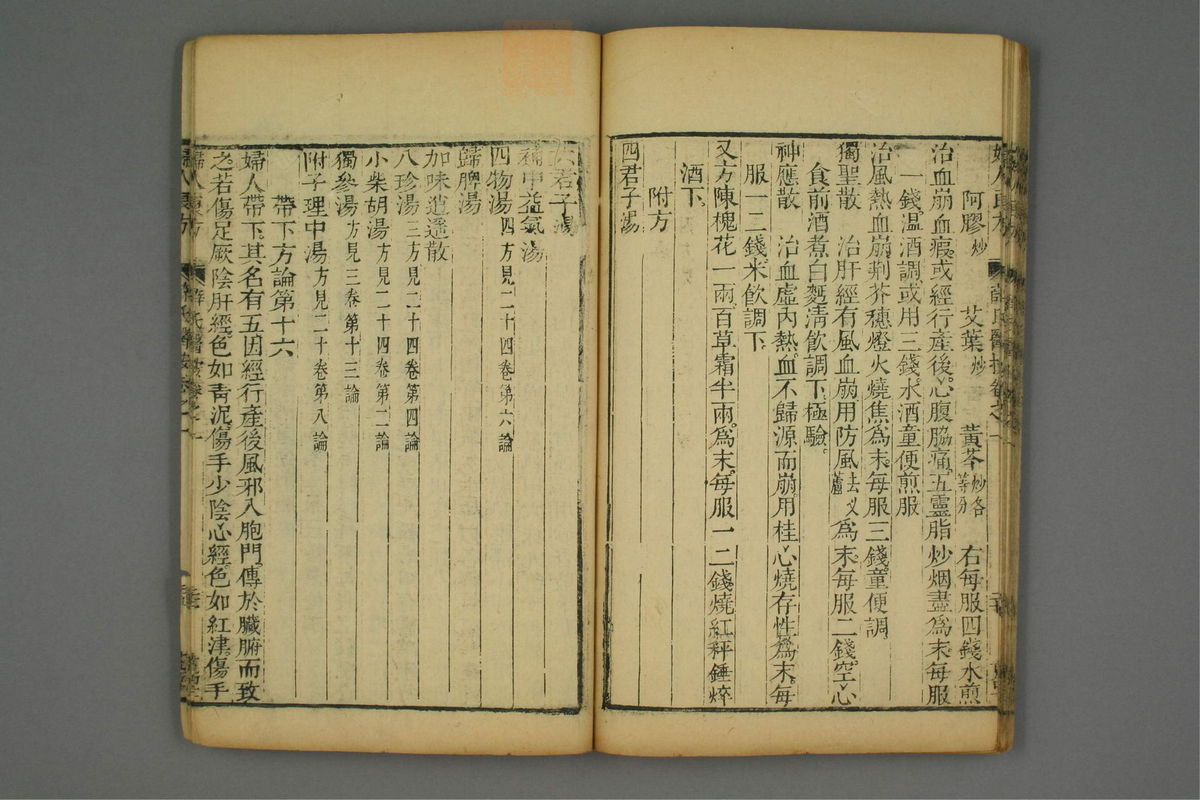 阿膠炒 艾葉炒 黃芩炒各等分 右每服四錢水煎
治血崩血瘕或經行產後心腹脇痛五靈脂炒烟盡為末每服
一錢溫酒調或用三錢水酒童便煎服
治風熱血崩荆芥穗燈火燒焦為末每服三錢童便調
獨聖散 治肝經有風血崩用防風去叉蘆為末每服二錢空心
食前酒煮白麪清飲調下極驗
神應散 治血虛內熱血不歸源而崩用桂心燒存性為末每
服一二錢米飲調下
又方陳槐花一兩百草霜半兩為末每服一二錢燒紅秤錘焠
酒下
附方
四君子湯
六君子湯
補中益氣湯
四物湯四方見二十四卷第六論
歸脾湯
加味逍遙散
八珍湯三方見二十四卷第四論
小柴胡湯方見二十四卷第二論
獨參湯方見三卷第十三論
附子理中湯方見二十卷第八論
帶下方論第十六
婦人帶下其名有五因經行產後風邪入胞門傳於臟腑而致
之若傷足厥陰肝經色如青泥傷手少陰心經色如紅津傷手
婦人良方